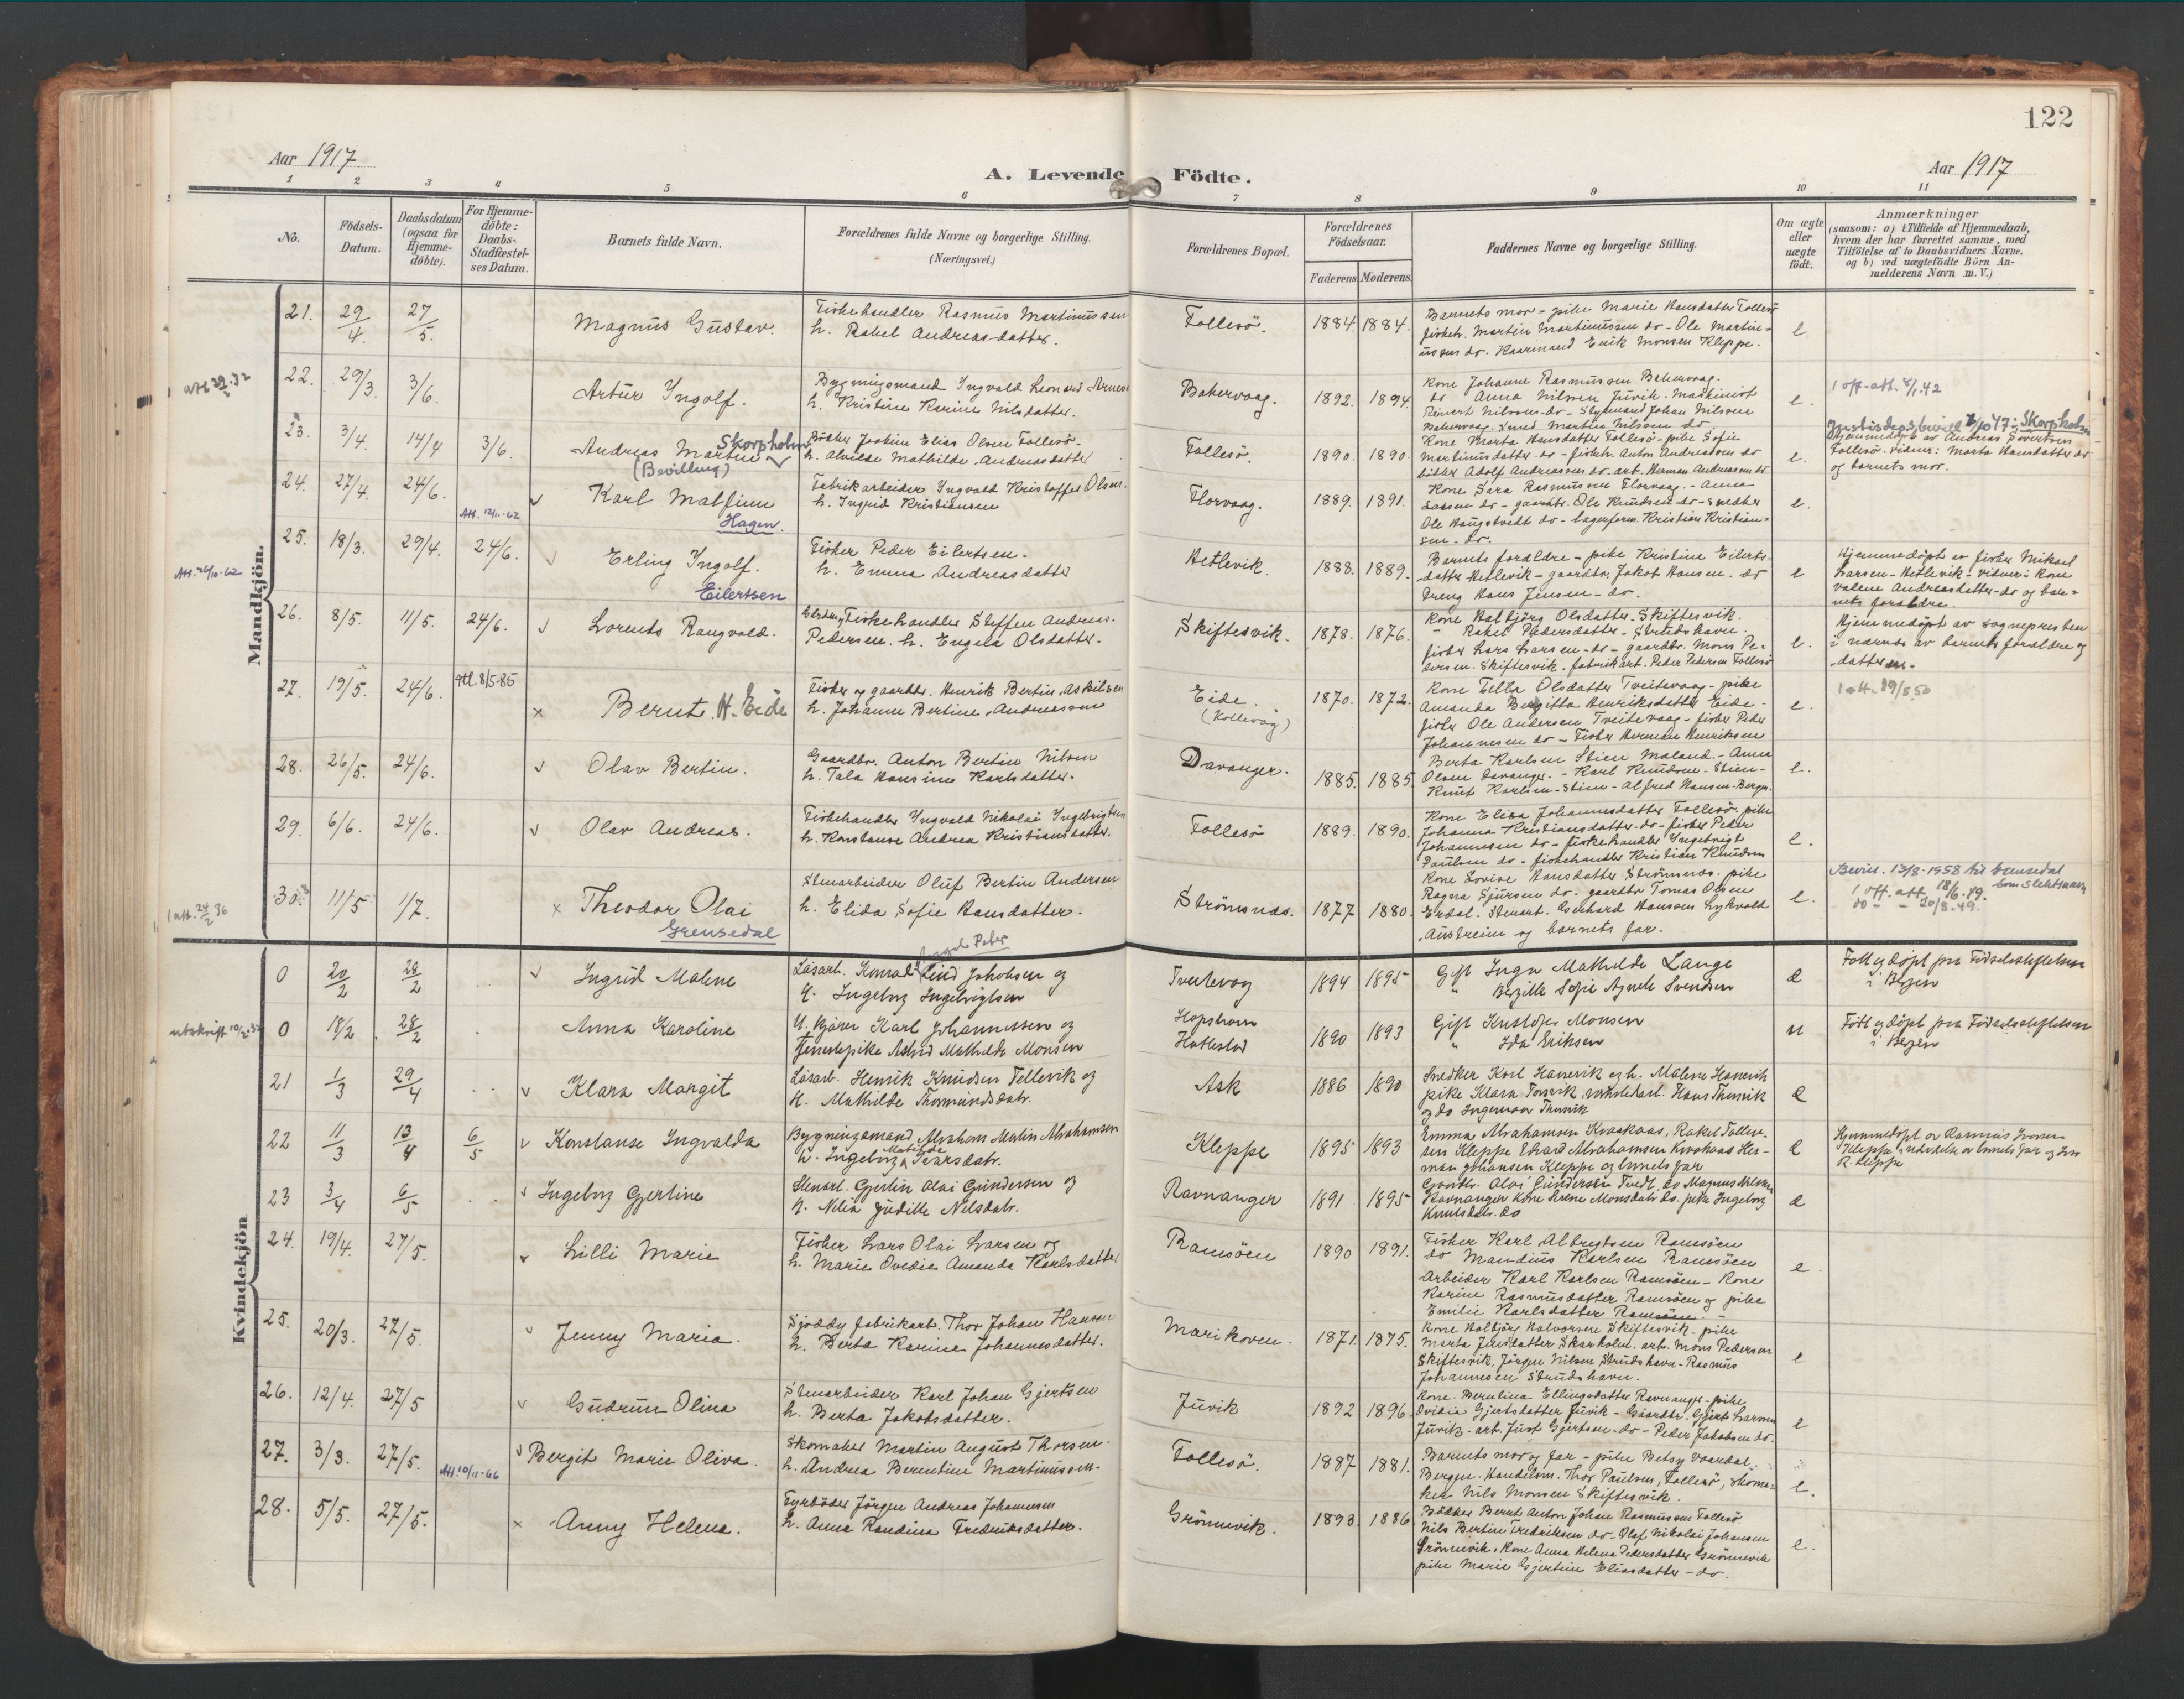 122
Aar 1917
A. Levende Födte.
Aar 1917
1 2 3 4 5 6 7 8 9 10 11
No.
Födsels-Datum.
Daabsdatum (ogsaa for Hjemme-döbte).
For Hjemme-döbte: Daabs-Stadfæstel-ses Datum.
Barnets fulde Navn.
Forældrenes fulde Navne og borgerlige Stilling. (Næringsvei.)
Forældrenes Bopæl.
Forældrenes Födselsaar.
Faderens Moderens
Faddernes Navne og borgerlige Stilling.
Om ægte eller uægte födt.
Anmærkninger
(saasom: a) i Tilfælde af Hjemmedaab,
hvem der har forrettet samme, med
Tilföielse af to Daabsvidners Navne.
og b) ved uægtefödte Börn An-
melderens Navn m. V.)
Mandkjön.
21. 29/4. 27/5. Magnus Gustav.
Fiskehandler Rasmus Martinussen
h. Rakel Andreasdatter.
Follesö. 1884. 1884.
Barnets mor - pike Marie Hansdatter Follesö
fiskeh. Martin Martinussen do - Ole Martin-
ussen do. Kaarmand Erik Monsen Kleppe.
e
22. 29/3. 3/6. Artur Ingolf.
Bygningsmand Ingvald Leonard Arnesen
h. Kristine Karine Nilsdatter.
Bakervaag. 1892. 1894.
Kone Johanne Rasmussen Bakervaag.
do Anna Nilsen Juvik. Maskinist
Reinert Nilsen do - Styrmand Johan Nilsen
Bakervaag. Smed Martin Nilsen do.
e.
1 off. att. 8/1.42
23. 3/4. 14/4 3/6. Andreas Martin Skorpholm
(Bevilling)
Fisker Joakim Elias Olsen Follesö.
h. Alvilde Mathilde Andreasdatter
Follesö. 1890. 1890.
Kone Marta Hansdatter Follesö - pike Sofie
Martinusdatter do - fiskeh. Anton Andreassen do
fisker Adolf Andreassen do. art. Herman Andreassen do
e.
Hjemmedöpt av Andreas Sivertsen
Follesö. vidner: Marta Hansdatter do
og barnets mor.
24. 27/4. 24/6. Karl Matfinn
Hagen.
Fabrikarbeider Ingvald Kristoffer Olsen.
h. Ingrid Kristiansen
Florvaag. 1889. 1891.
Kone Sara Rasmussen Florvaag. - Anna
Larsen do - gaardbr. Ole Knudsen do - snedker
Ole Haugstvedt do - lagerform. Kristian Kristian-
sen - do.
e.
Att. 12/11-62
25. 18/3. 29/4. 24/6. Erling Ingolf.
Eilertsen
Fisker Peder Eilertsen.
h. Emma Andreasdatter
Hetlevik. 1888. 1889.
Barnets foreldre - pike Kristine Eilerts-
datter Hetlevik - gaardbr. Jakob Hansen. do
Dreng Hans Jensen - do.
e
Hjemmedöpt av fisker Mikael
Larsen - Hetlevik - vidner: Kone
Valene Andreasdatter - do og bar-
nets foreldre.
26. 8/5. 11/5. 24/6. Lorents Rangvald.
Fiskehandler Steffen Andreas.
Pedersen. h. Engela Olsdatter.
Skiftesvik. 1878. 1876.
Kone Halbjörg Olsdatter. Skiftesvik.
" Rakel Pedersdatter - Strudshavn.
fisker Lars Larsen - do - gaardbr. Mons Pe-
dersen. Skiftesvik. fabrikart. Peder Pedersen Follesö
e.
Hjemmedöpt av sognepresten
i nærvær av barnets foreldre og
datter.
27. 19/5. 24/6. Att. 8/5-85 Bernt. H. Eide
Fisker og gaardbr. Henrik Bertin Askildsen
h. Johanne Bertine Andreassen
Eide.
(Kollevåg)
1870. 1872.
Kone Tella Olsdatter Tveitevaag - pike
Amanda Bergitta Henriksdatter Eide -
fisker Ole Andersen Tveitevaag - fisker Peder
Johannesen do - Fisker Herman Henriksen
e.
1 att. 19/5 50
28. 26/5. 24/6. Olav Bertin.
Gaardbr. Anton Bertin Nilsen
h. Tala Hansine Karlsdatter.
Davanger. 1885. 1885.
Berta Karlsen Stien Maland. - Anna
Olsen Davanger. - Karl Knudsen - Stien -
Knut Karlsen - Stien - Alfred Hansen - Bergen.
e.
29. 6/6. 24/6. Olav Andreas.
Fiskehandler Ingvald Nikolai Ingebrigtsen
h. Konstanse Andrea Kristiansdatter.
Follesö 1889. 1890.
Kone Elisa Johannesdatter Follesö. pike
Johanna Kristiansdatter - do - fisker Peder
Johannesen do - fiskehandler Ingebrigt
Paulsen do - fiskehandler Kristian Knudsen
e.
30. 11/5 1/7. Theodor Olai
Grensedal
Stenarbeider Oluf Bertin Andersen
h. Elida Sofie Hansdatter.
Strömsnes. 1877 1880.
Kone Lovise Hansdatter Strömsnes. pike
Ragna Sjursen do. gaardbr Tomas Olsen
Erdal. Stenart. Gerhard Hansen Lykvold
Austreim og barnets far.
e.
Bevil. 13/8-1958 til Grensedal
som slektsnavn
1 off. att. 18/6.49.
do - - 20/8.49.
1 att. 24/2 36
Kvindekjön
0 20/2 28/2 Ingrid Malene
Lösarb. Konrad Lind Jakobsen og
H. Ingeborg Ingebrigtsen
Tveitevog 1894 1895
Gift Inga Mathilde Lange
" Bergitte Sofie Agnete Svendsen
e
Födt og döpt paa Födselsstiftelsen
i Bergen
0 18/2 28/2 Anna Karoline
U. Kjører Karl Johannessen og
Tjenestepike Astrid Mathilde Monsen
Hopshavn
Hatlestad
1890 1893
Gift Kristofer Monsen
" Ida Eriksen
u
Födt og döpt paa Födselsstiftelsen
i Bergen
21 1/3 29/4 Klara Margit
Lösarb. Henrik Knudsen Tellevik og
H. Mathilde Thormundsdatr.
Ask 1886 1890
Snedker Karl Hanevik og h. Malene Hanevik
pike Klara Tunsvik
e
22 11/3 13/4 6/5 Konstanse Ingvalda
Bygningsmand Abraham Martin Abrahamsen
h. Ingeborg Mathilde Ivarsdatr.
Kleppe 1895 1893
Emma Abrahamsen Krokaas, Rakel Tolleiv-
sen Kleppe Edvard Abrahamsen Krokaas Her-
man Johansen Kleppe og barnets far
e
23 3/4 6/5 Ingeborg Gjertine
Stenarb. Gjertin Olai Gundersen og
h. Nilia Judille Nilsdatr.
Ravnanger 1891 1895
Gaardbr. Olai Gundersen Tvedt, do Magnus Nilsen
Ravnanger Kone Serene Monsdatr do. pike Ingeborg
Knutsdatr. do
e
24. 19/4. 27/5. Lilli Marie
Fisker Lars Olai Larsen og
h. Marie Ovedie Amanda Karlsdatter
Ramsöen 1890 1891.
Fisker Karl Albregtsen Ramsöen
do Mandius Karlsen Ramsöen
Arbeider Karl Karlsen Ramsöen - Kone
Karine Rasmusdatter Ramsöen og pike
Emilie Karlsdatter Ramsöen.
e.
25. 20/3. 27/5. Jenny Maria.
Sjoddy fabrikart. Thor Johan Hansen
h. Berta Karine Johannesdatter.
Marikoven. 1871. 1875.
Kone Halbjörg Halvorsen Skiftesvik. pike
Marta Jensdatter Skarholm. art. Mons Pedersen
Skiftesvik, Jörgen Nilsen Strudshavn - Rasmus
Johannesen Strudshavn.
e
26. 12/4. 27/5 Gudrun Olina
Stenarbeider Karl Johan Gjertsen
h. Berta Jakobsdatter.
Juvik 1892 1896.
Kone. Berntina Ellingsdatter Ravnanger - pike
Ovidia Gjertsdatter Juvik - Gaardbr. Gjert Larsen
Juvik - art. Just Gjertsen - do - Peder Jakobsen do.
e
27. 3/3. 27/5. Att. 10/11-66 Bergit Marie Oliva.
Skomaker Martin August Thorsen.
h. Andrea Berntine Martinussen.
Follesö. 1887 1881.
Barnets mor og far - pike Betsy Vaardal.
Bergen. Handelsm. Thor Paulsen, Follesö, skoma-
ker Nils Monsen Skiftesvik.
e.
28. 5/5. 27/5. Anny Helena.
Fyrböder Jörgen Andreas Johannesen
h. Anna Randine Fredriksdatter.
Grönnevik. 1893. 1886
Bödker Bernt Anton Johan Rasmussen Follesö
Nils Bertin Fredriksen do - Olaf Nikolai Johansen
Grönnevik. Kone Anna Helena Pedersdatter Grönnevik
pike Marie Gjertine Eliasdatter - do.
e.